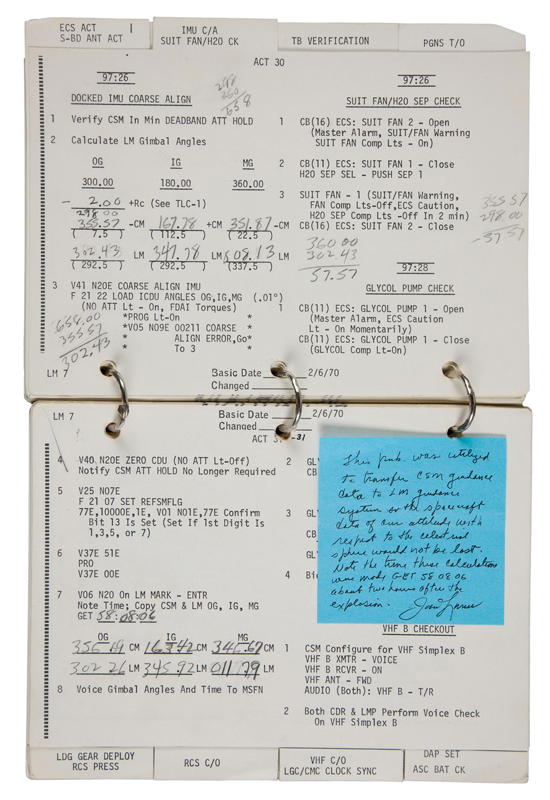 ECS ACT
S-BD ANT ACT
IMU C/A
SUIT FAN/H2O CK
TB VERIFICATION
PGNS T/O
ACT 30
97:26
DOCKED IMU COARSE ALIGN
298
360
658
1 Verify CSM In Min DEADBAND ATT HOLD
2 Calculate LM Gimbal Angles
OG IG MG
300.00 180.00 360.00
- 2.00 +Rc (See TLC-1)
298.00
355.57 -CM 167.78 +CM 351.87 -CM
(7.5) (112.5) (22.5)
302.43 LM 347.78 LM 008.13 LM
(292.5) (292.5) (337.5)
3 V41 N20E COARSE ALIGN IMU
F 21 22 LOAD ICDU ANGLES OG,IG,MG (.01°)
(NO ATT Lt - On, FDAI Torques)
*PROG Lt-On *
*V05 N09E 00211 COARSE *
* ALIGN ERROR,Go*
* To 3 *
658.00
355.57
302.43
LM 7
Basic Date 2/6/70
Changed
97:26
SUIT FAN/H2O SEP CHECK
1 CB(16) ECS: SUIT FAN 2 - Open
(Master Alarm, SUIT/FAN Warning
SUIT FAN Comp Lts - On)
2 CB(11) ECS: SUIT FAN 1 - Close
H2O SEP SEL - PUSH SEP 1
3 SUIT FAN - 1 (SUIT/FAN Warning,
FAN Comp Lts-Off,ECS Caution,
H2O SEP Comp Lts -Off In 2 min)
CB(16) ECS: SUIT FAN 2 - Close
355.57
298.00
-57.57
360.00
302.43
57.57
97:28
GLYCOL PUMP CHECK
1 CB(11) ECS: GLYCOL PUMP 1 - Open
(Master Alarm, ECS Caution
Lt - On Momentarily)
CB(11) ECS: GLYCOL PUMP 1 - Close
(GLYCOL Comp Lt-On)
LM 7
Basic Date 2/6/70
Changed
ACT 31
-31
4 V40 N20E ZERO CDU (NO ATT Lt-Off)
Notify CSM ATT HOLD No Longer Required
5 V25 N07E
F 21 07 SET REFSMFLG
77E,10000E,1E, V01 N01E,77E Confirm
Bit 13 Is Set (Set If 1st Digit Is
1,3,5, or 7)
6 V37E 51E
PRO
V37E 00E
7 V06 N20 On LM MARK - ENTR
Note Time; Copy CSM & LM OG, IG, MG
GET 58:08:06
OG IG MG
CM 163.42 CM 346.67 CM
302 26 LM 345.92 LM 011.79 LM
8 Voice Gimbal Angles And Time To MSFN
2 GLY
3 GLY
CB
GLY
4
This pub. was utilized
to transfer CSM guidance
data to LM guidance
system so the spacecraft
data of our attitude with
respect to the celestial
sphere would not be lost.
Note the time these calculations
was made GET 58 08 06
about two hours after the
explosion. Jim Lovell
VHF B CHECKOUT
1 CSM Configure for VHF Simplex B
VHF B XMTR - VOICE
VHF B RCVR - ON
VHF ANT - FWD
AUDIO (Both): VHF B - T/R
2 Both CDR & LMP Perform Voice Check
On VHF Simplex B
LDG GEAR DEPLOY
RCS PRESS
RCS C/O
VHF C/O
LGC/CMC CLOCK SYNC
DAP SET
ASC BAT CK